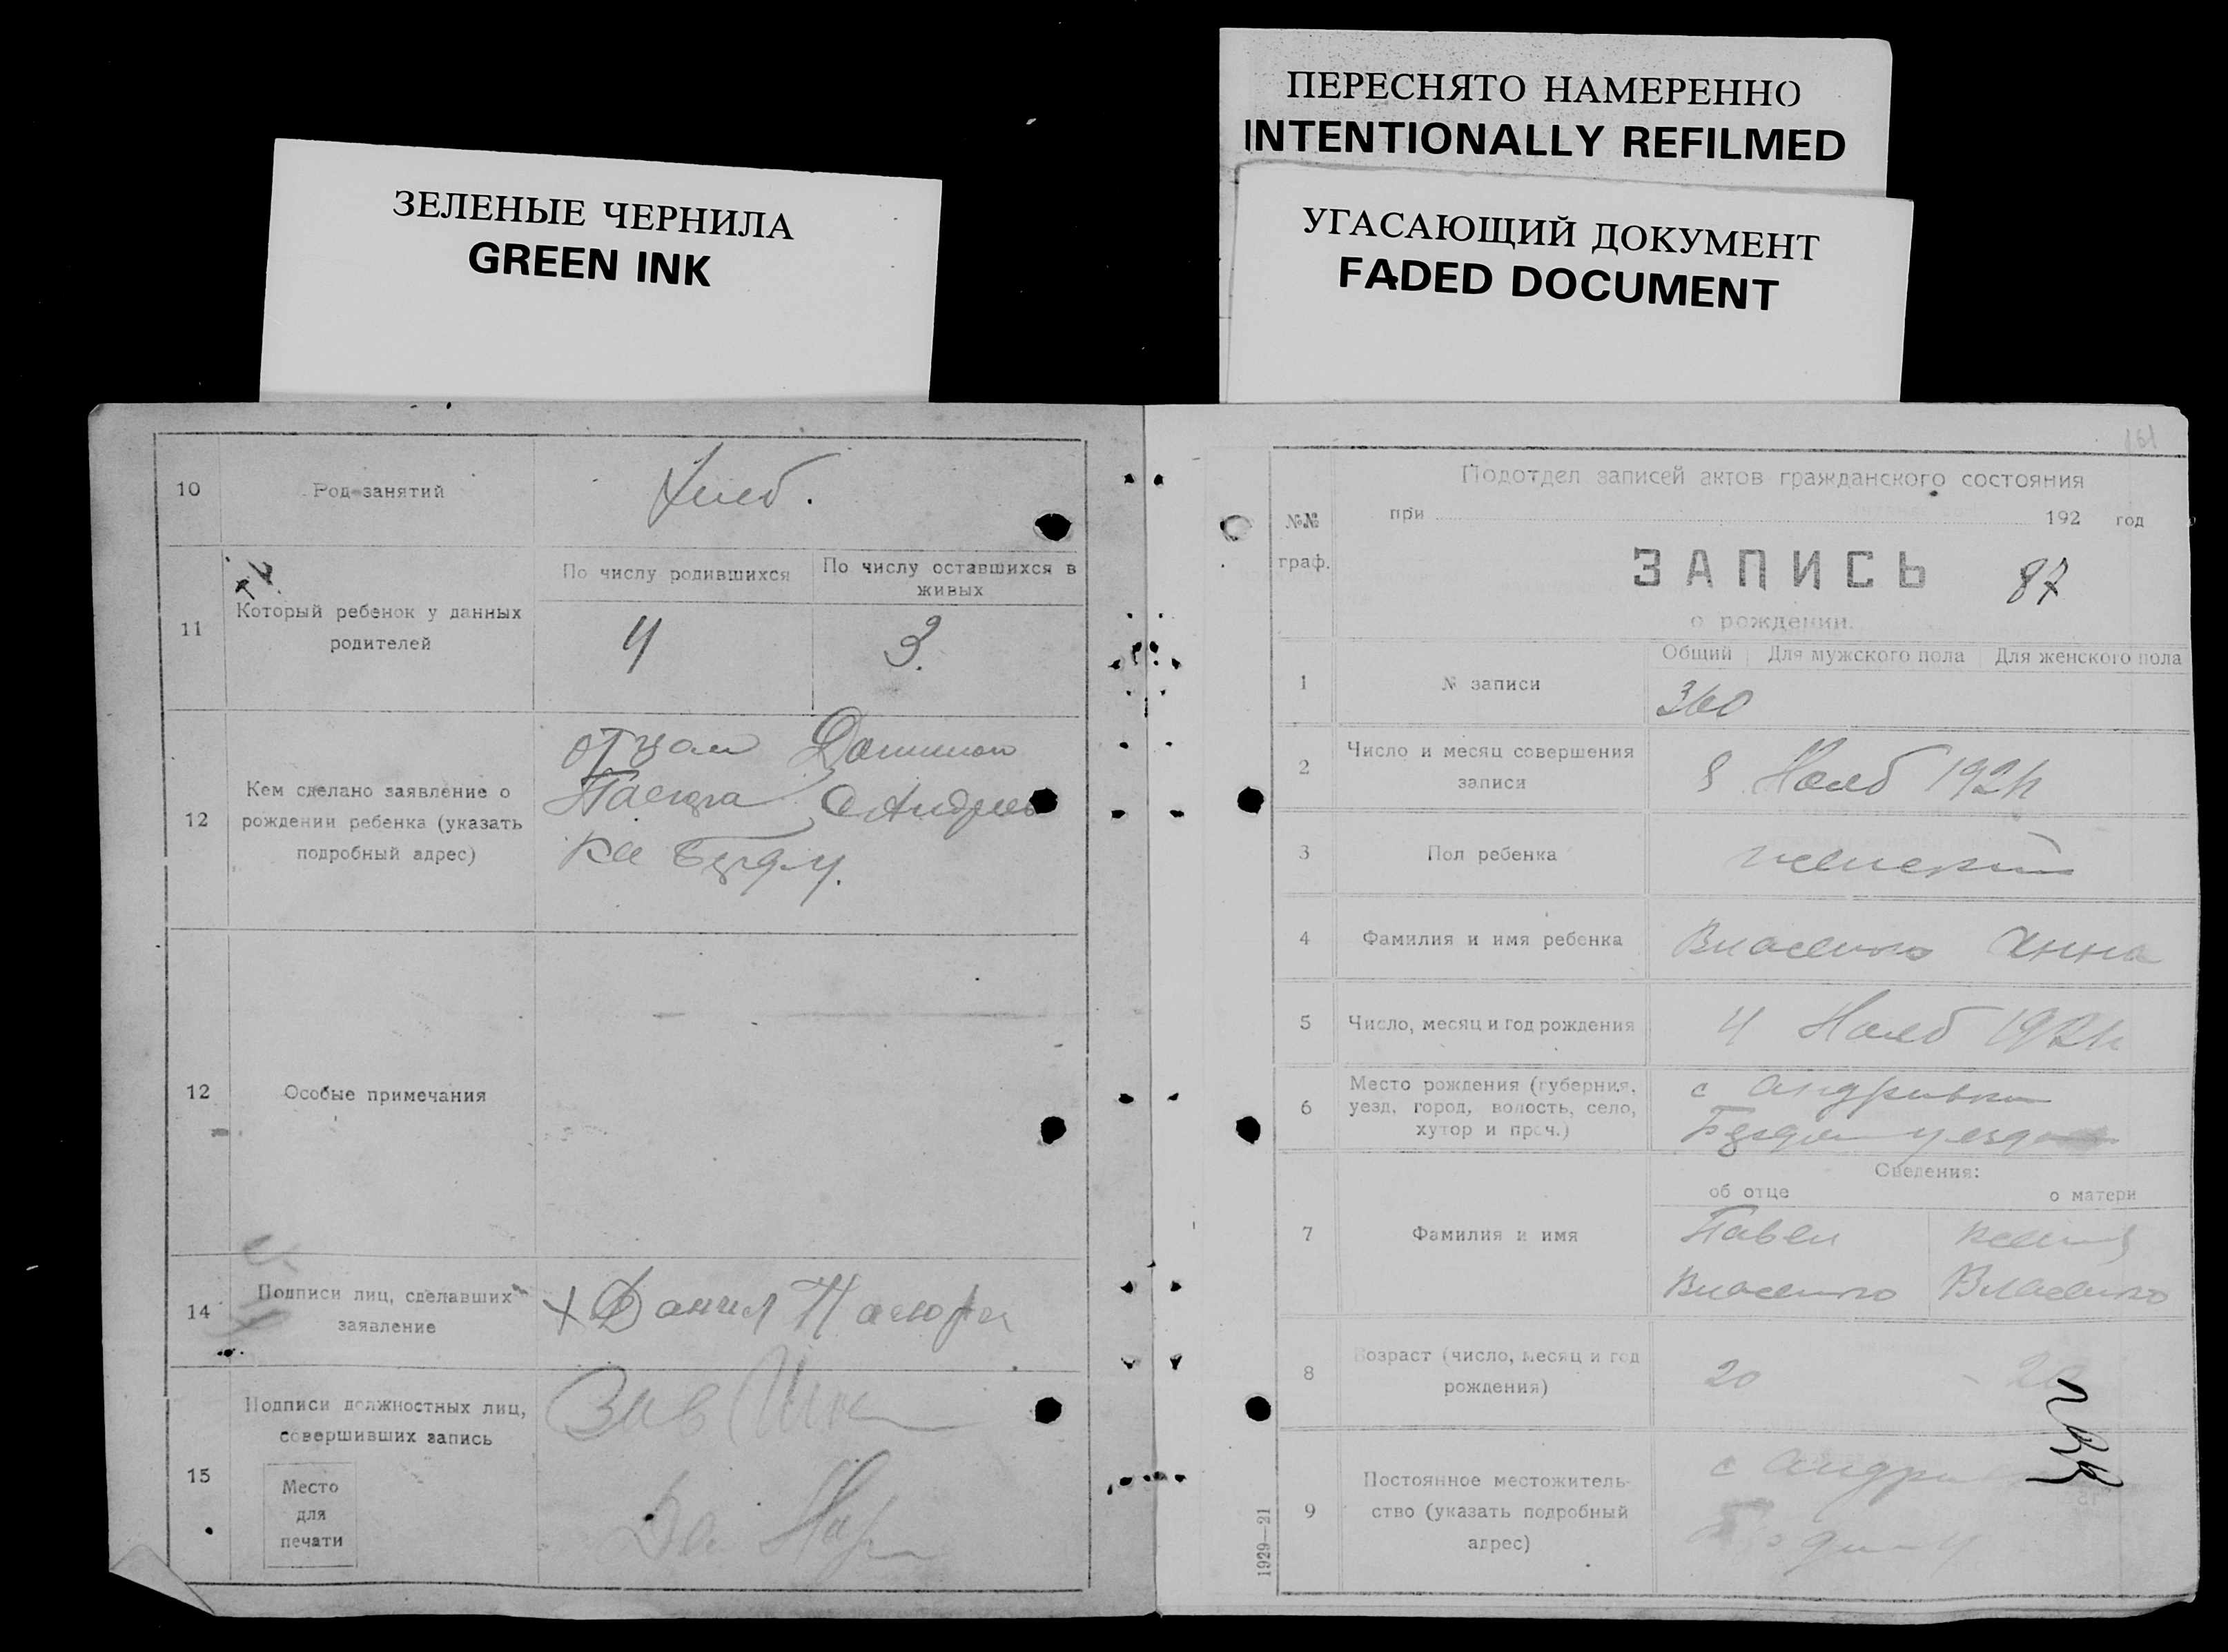 ПЕРЕСНЯТО НАМЕРЕННО
INTENTIONALLY REFILMED
УГАСАЮЩИЙ ДОКУМЕНТ
FADED DOCUMENT
ЗЕЛЕНЫЕ ЧЕРНИЛА
GREEN INK
10
Род занятий
Хлеб.
11
Который ребенок у данных
родителей
По числу родившихся
По числу оставшихся в
живых
4
3.
12
Кем сделано заявление о
рождении ребенка (указать
подробный адрес)
отцом
12
Особые примечания
14
Подписи лиц, сделавших
заявление
+ Данил
15
Подписи должностных лиц,
совершивших запись
Место
для
печати
Зав
161
Подотдел записей актов гражданского состояния
№№
граф.
при 192 год
ЗАПИСЬ
87
о рождении.
1
№ записи
Общий
Для мужского пола
Для женского пола
360
2
Число и месяц совершения
записи
8 Нояб 1921
3
Пол ребенка
женский
4
Фамилия и имя ребенка
Власенко Анна
5
Число, месяц и год рождения
4 Нояб 1921
6
Место рождения (губерния,
уезд, город, волость, село,
хутор и проч.)
с Андривки
уезда
Сведения:
об отце
о матери
7
Фамилия и имя
Павел
Власенко
Власенко
8
Возраст (число, месяц и год
рождения)
20
20
9
Постоянное местожитель-
ство (указать подробный
адрес)
с
1929—21